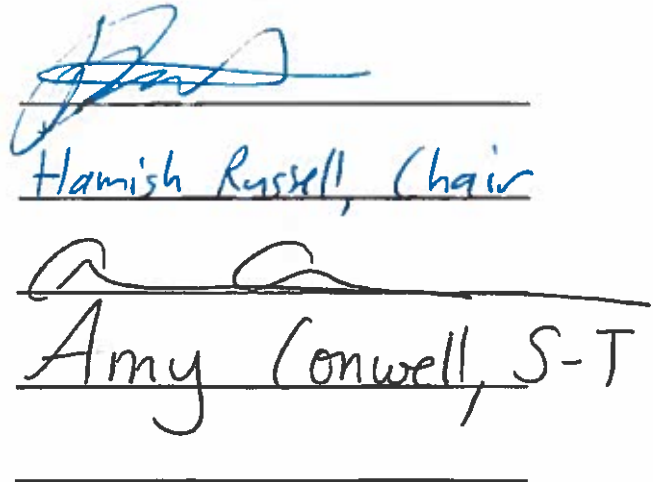 Hamish Russell, Chair
Amy Conwell, S-T